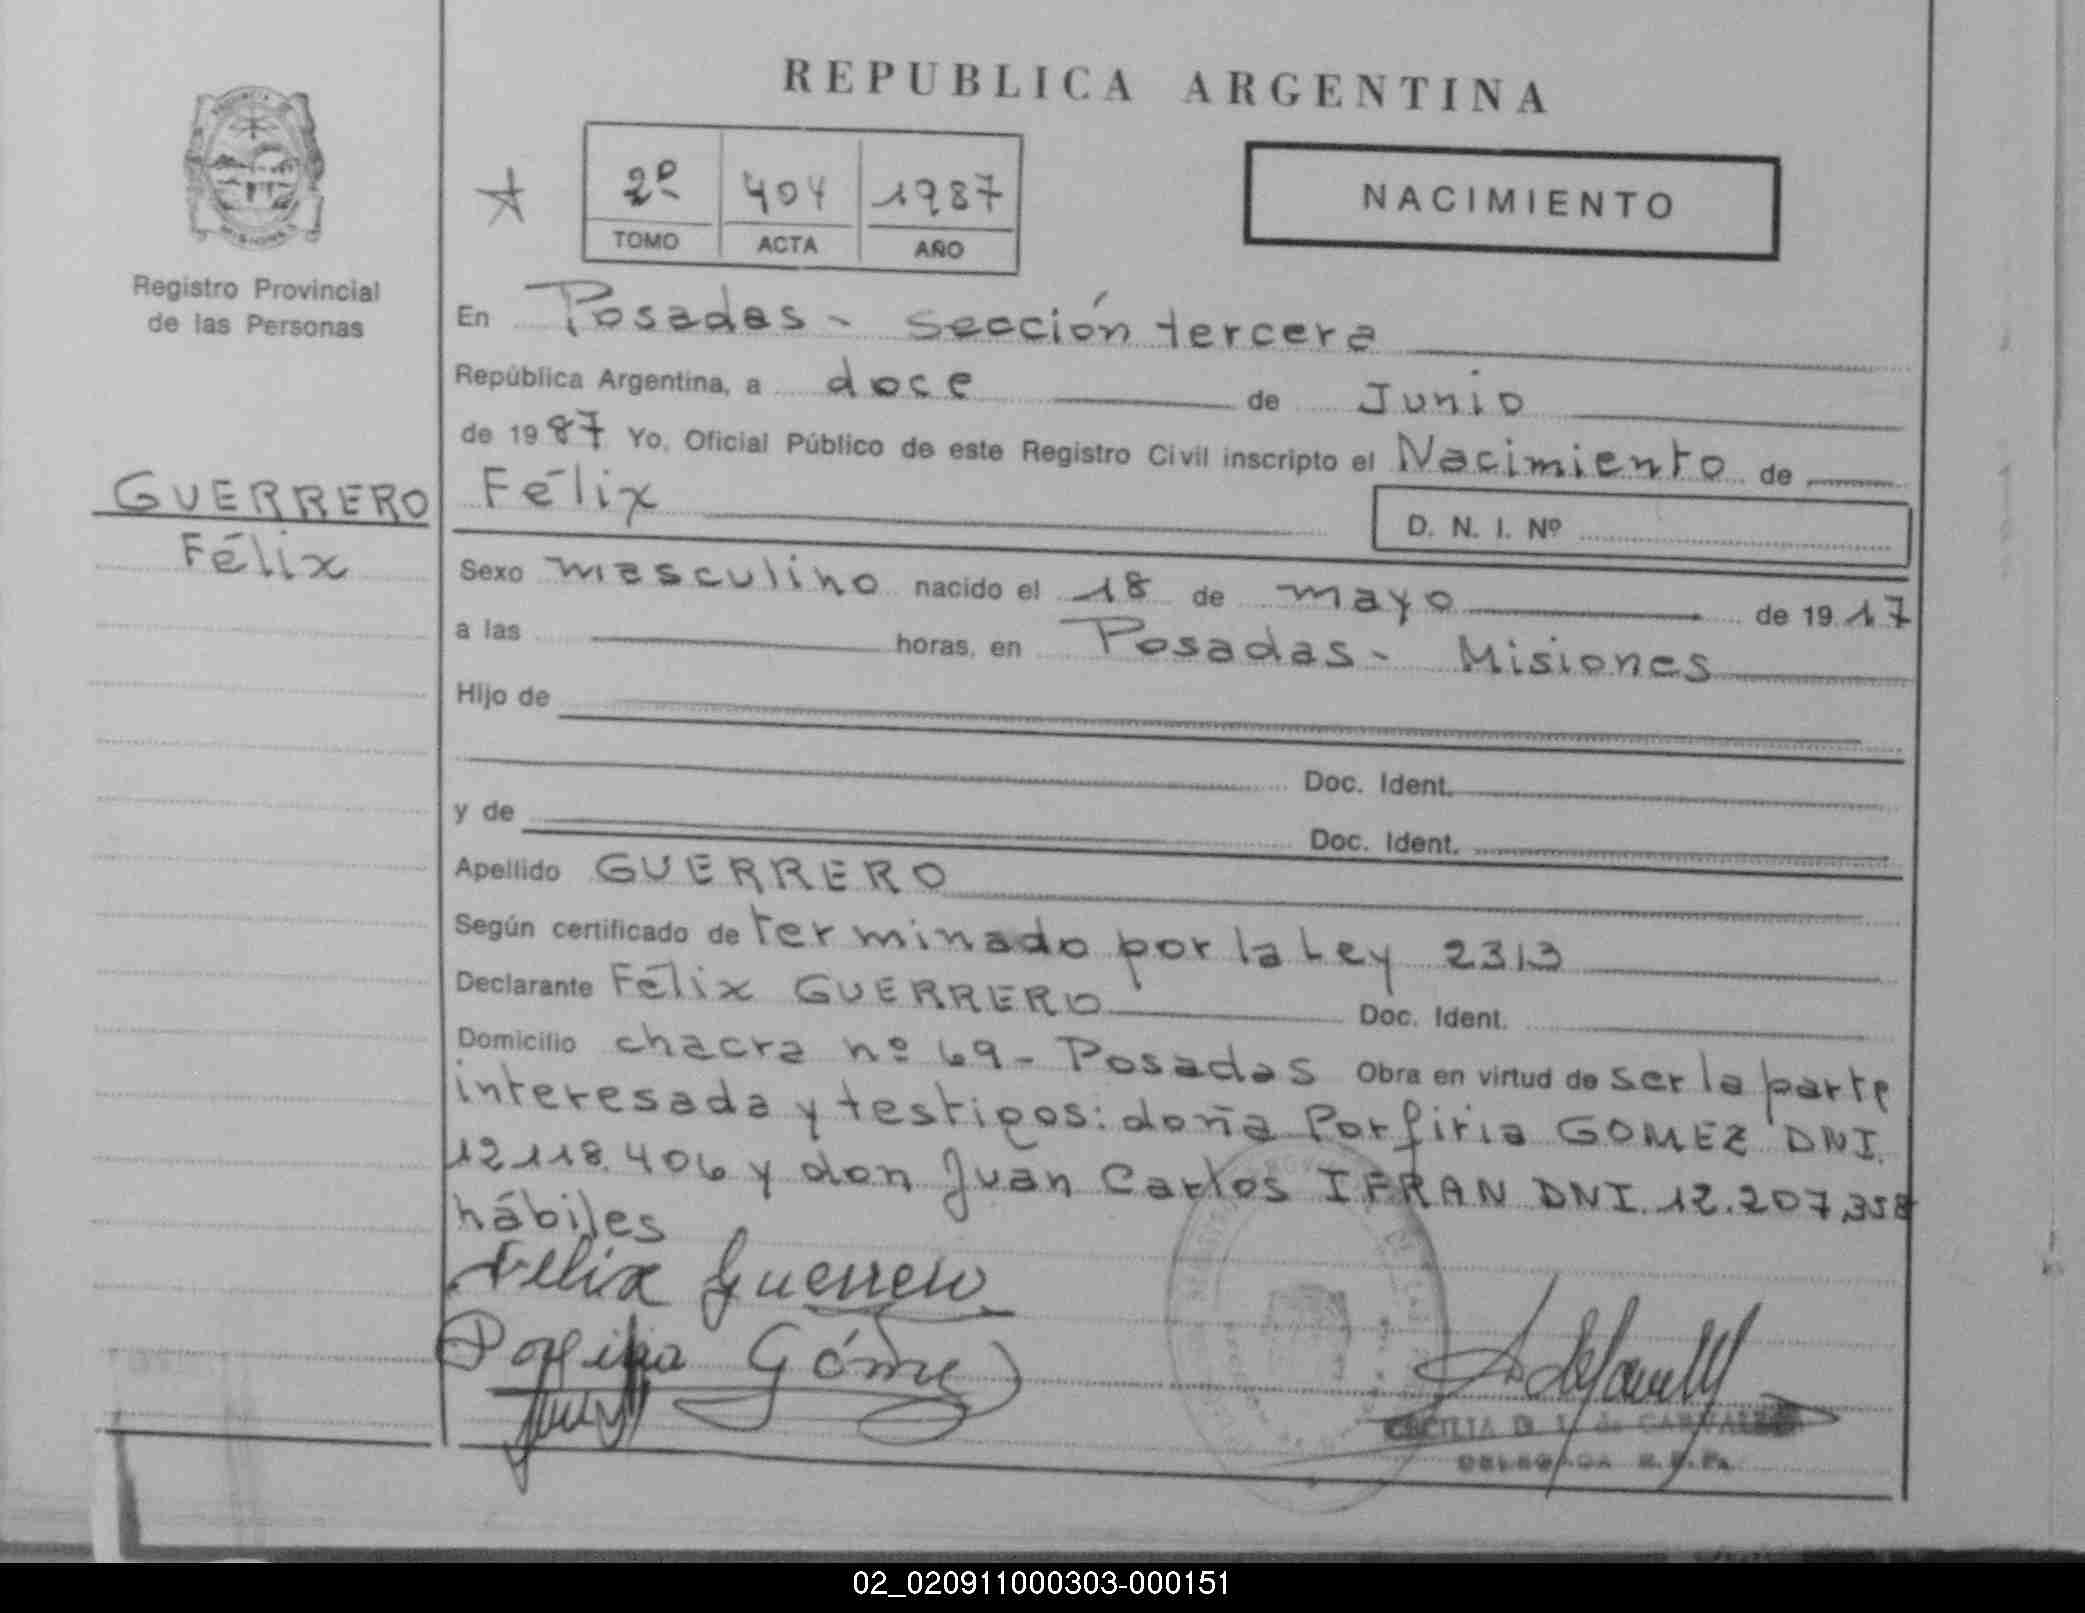 REPUBLICA ARGENTINA
2º 404 1987
TOMO ACTA AÑO
NACIMIENTO
Registro Provincial
de las Personas
GUERRERO
Félix
En Posadas - Sección tercera
República Argentina, a doce de Junio
de 1987 Yo, Oficial Público de este Registro Civil inscripto el Nacimiento de
Félix
D. N. I. Nº
Sexo masculino nacido el 18 de mayo de 1917
a las horas, en Posadas - Misiones
Hijo de
Doc. Ident.
y de Doc. Ident.
Apellido GUERRERO
Según certificado de terminado por la Ley 2313
Declarante Félix GUERRERO Doc. Ident.
Domicilio chacra nº 69 - Posadas Obra en virtud de ser la parte
interesada y testigos: doña Porfiria GOMEZ DNI.
12.118.406 y don Juan Carlos IFRAN DNI. 12.207.358
hábiles
Felix Guerrero
Porfiria Gómez
CECILIA
DELEGADA
02_020911000303-000151